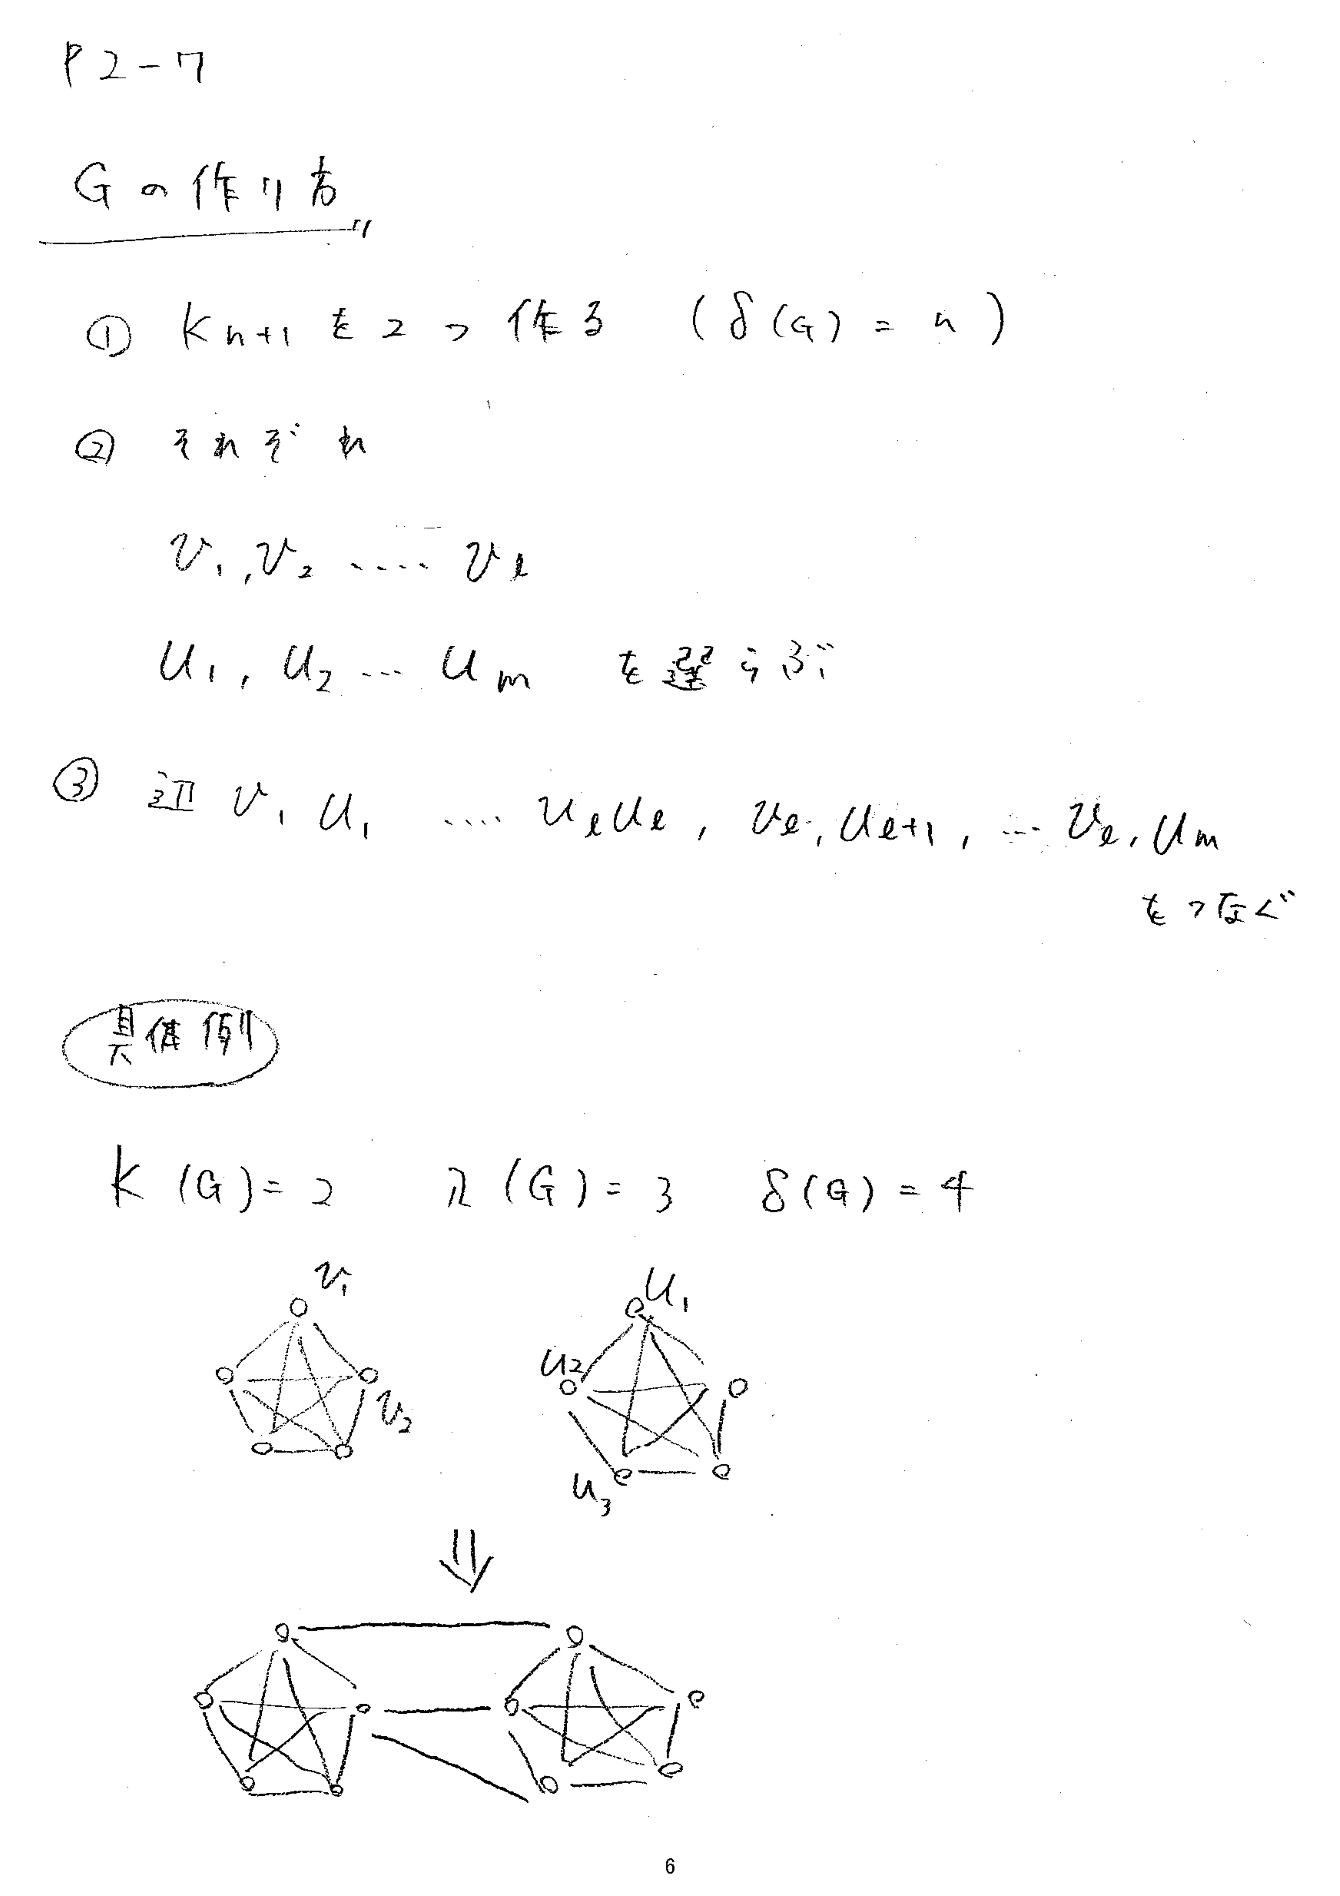 P2-7
Gの作り方
① Kn+1を2つ作る (δ(G) = n)
② それぞれ
v1, v2 ‥‥ vℓ
u1, u2 … um を選らぶ
③ 辺 v1 u1 ‥‥ uℓuℓ, vℓ, uℓ+1, … vℓ, um
をつなぐ
具体例
K(G)=2 λ(G)=3 δ(G)=4
v1 u1
u2
v2
u3
⇓
6